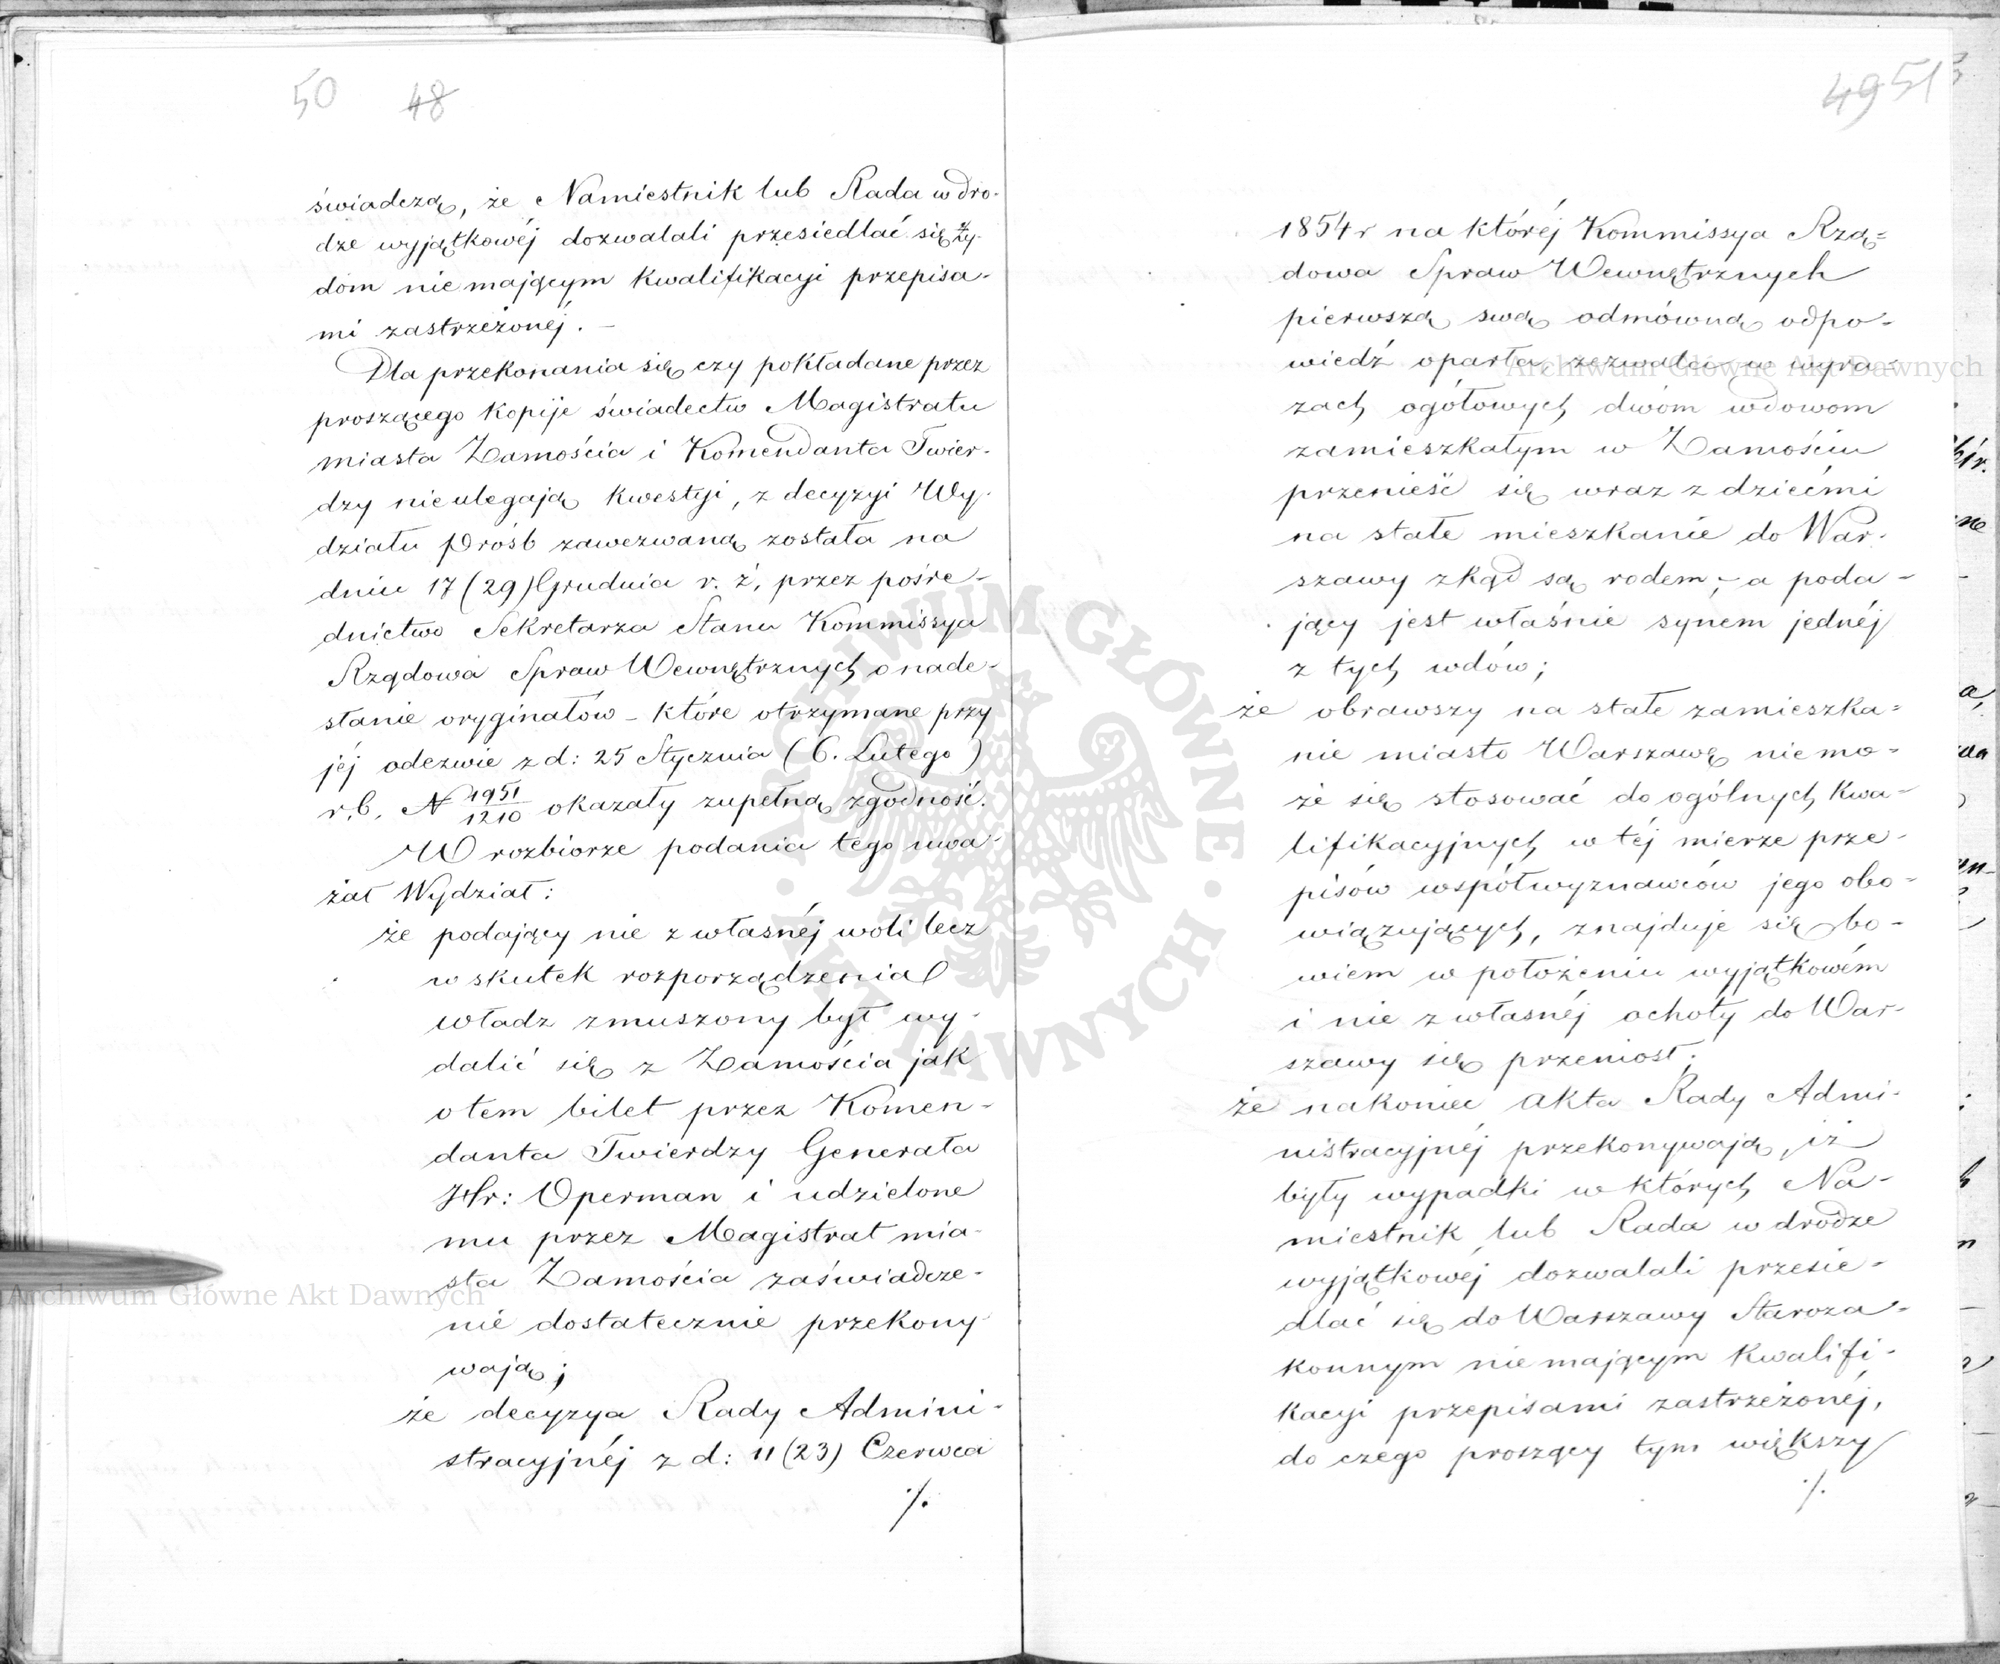 50 48
świadczą, że Namiestnik lub Rada w dro-
dze wyjątkowéj dozwalali przesiedlać się Ży-
dom nie mającym kwalifikacyi przepisa-
mi zastrzeżonéj. –
Dla przekonania się czy pokładane przez
proszącego kopije świadectw Magistratu
miasta Zamościa i Komendanta Twier-
dzy nie ulegają kwestyi, z decyzyi Wy-
działu Próśb zawezwaną została na
dniu 17 (29) Grudnia r. z, przez pośre-
dnictwo Sekretarza Stanu Kommissya
Rządowa Spraw Wewnętrznych o nade-
słanie oryginałów – które otrzymane przy
jéj odezwie z d: 25 Stycznia (6. Lutego)
r.b. N 1951/1210 okazały zupełną zgodność.
W rozbiorze podania tego uwa-
żał Wydział:
że podający nie z własnéj woli lecz
w skutek rozporządzenia
władz zmuszony był wy-
dalić się z Zamościa jak
o tem bilet przez Komen-
danta Twierdzy Generała
Hr: Operman i udzielone
mu przez Magistrat mia-
sta Zamościa zaświadcze-
nie dostatecznie przekony-
wają;
że decyzya Rady Admini-
stracyjnéj z d: 11 (23) Czerwca
./.
49 51
1854 r na któréj Kommissya Rzą-
dowa Spraw Wewnętrznych
pierwszą swą odmówną odpo-
wiedź oparła, zezwala w wyra-
zach ogółowych dwóm wdowom
zamieszkałym w Zamościu
przenieść się wraz z dziećmi
na stałe mieszkanie do War-
szawy zkąd są rodem; – a poda-
jący jest właśnie synem jednéj
z tych wdów;
że obrawszy na stałe zamieszka-
nie miasto Warszawę nie mo-
że się stosować do ogólnych kwa-
lifikacyjnych w téj mierze prze-
pisów współwyznawców jego obo-
wiązujących, znajduje się bo-
wiem w położeniu wyjątkowém
i nie z własnéj ochoty do War-
szawy się przeniosł;
że nakoniec akta Rady Admi-
nistracyjnéj przekonywają, iż
były wypadki w których Na-
miestnik lub Rada w drodze
wyjątkowéj dozwalali przesie-
dlać się do Warszawy Staroza-
konnym nie mającym kwalifi-
kacyi przepisami zastrzeżonéj,
do czego proszący tym większy
./.
Archiwum Główne Akt Dawnych
Archiwum Główne Akt Dawnych
ARCHIWUM GŁÓWNE AKT DAWNYCH